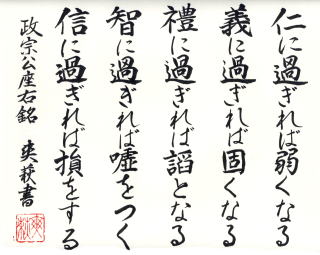 仁に過ぎれば弱くなる
義に過ぎれば固くなる
禮に過ぎれば諂となる
智に過ぎれば嘘をつく
信に過ぎれば損をする
政宗公座右銘
爽萩書